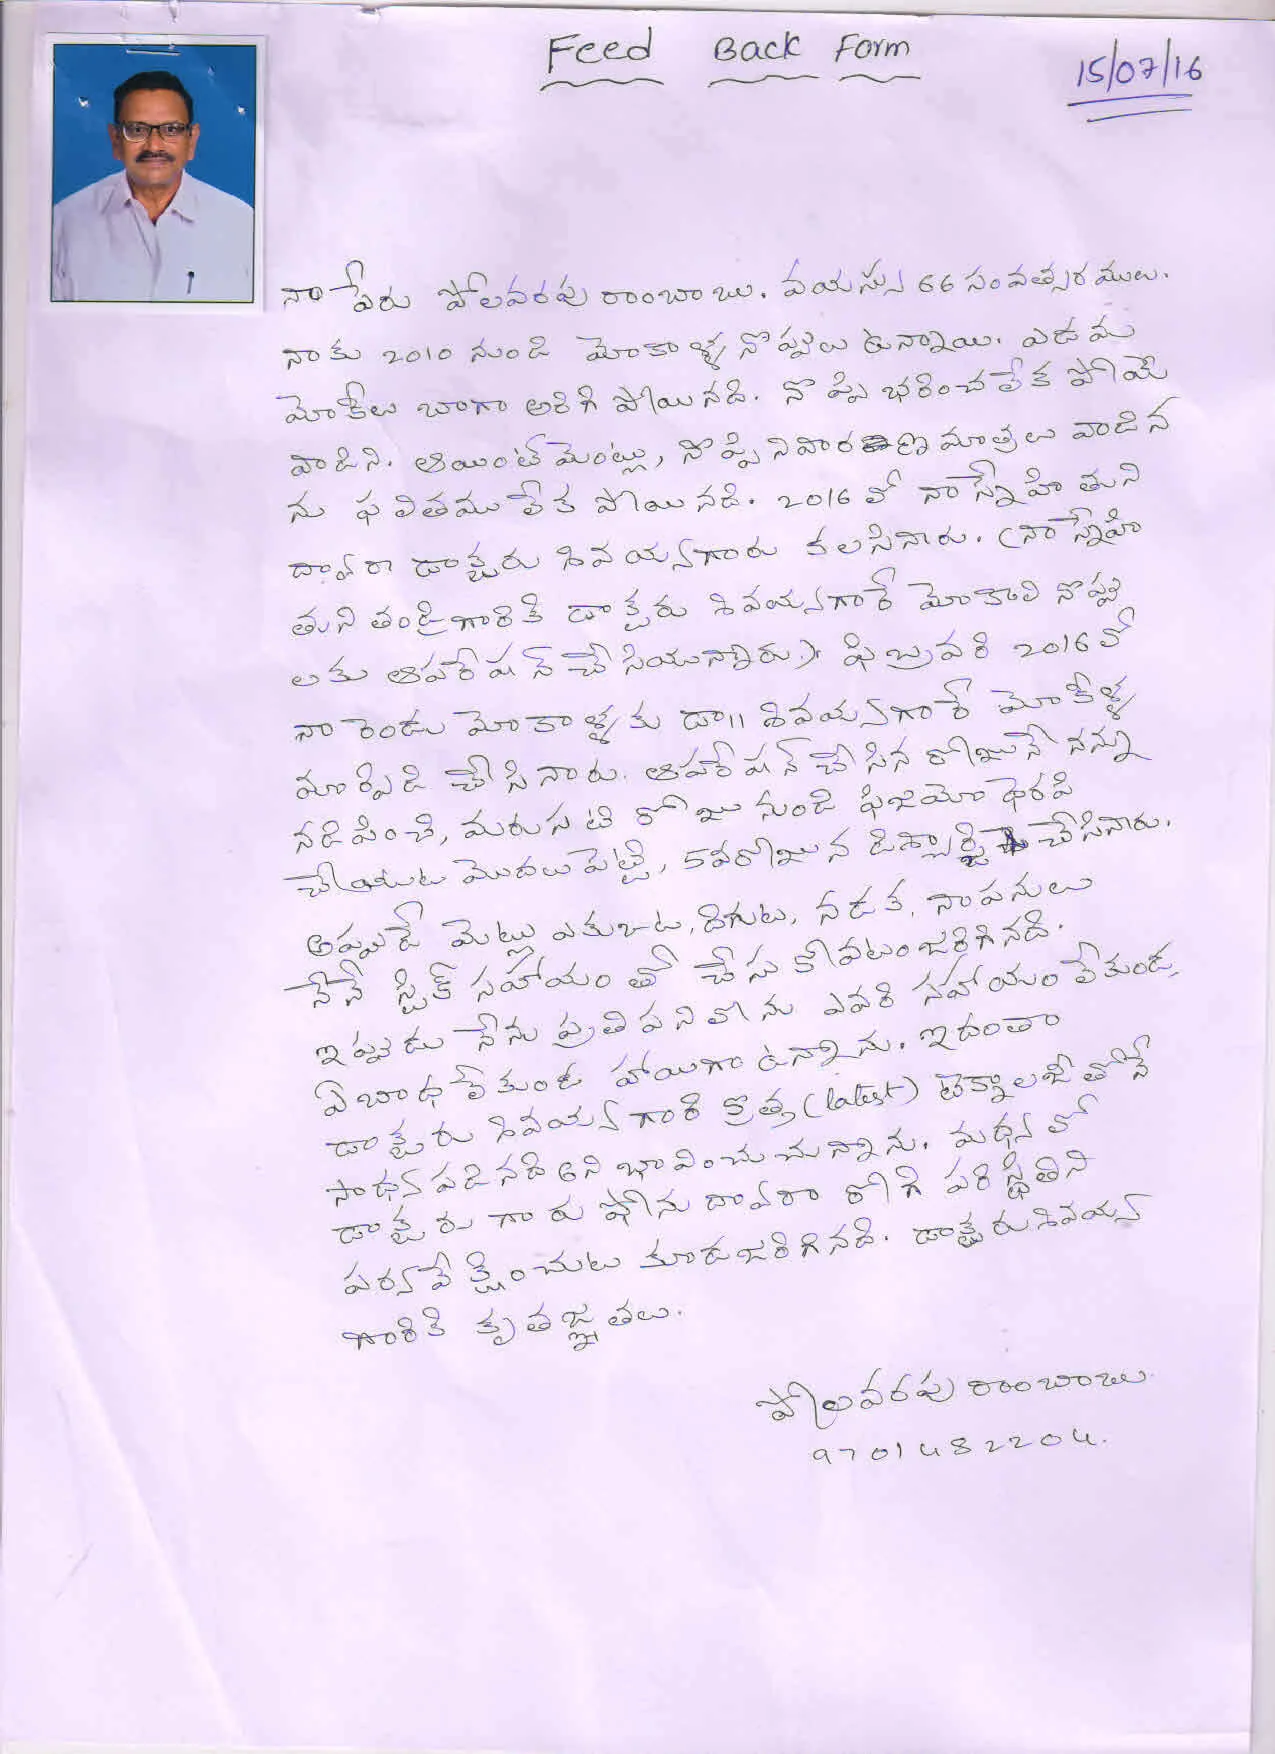 Feed Back Form
15/07/16
నా పేరు పోలవరపు రాంబాబు. వయస్సు 66 సంవత్సరములు.
నాకు 2010 నుండి మోకాళ్ళ నొప్పులు ఉన్నాయి. ఎడమ
మోకీలు బాగా అరిగి పోయినది. నొప్పి భరించలేక పోయే
వాడిని. ఆయింట్‌మెంట్లు, నొప్పి నివారణ మాత్రలు వాడిన
ను ఫలితము లేక పోయినది. 2016 లో నా స్నేహితుని
ద్వారా డాక్టరు శివయ్యగారు కలసినారు. (నా స్నేహి
తుని తండ్రిగారికి డాక్టరు శివయ్యగారే మోకాలి నొప్పు
లకు ఆపరేషన్ చేసియున్నారు.) ఫిబ్రవరి 2016 లో
నా రెండు మోకాళ్ళకు డా॥ శివయ్యగారే మోకీళ్ళ
మార్పిడి చేసినారు. ఆపరేషన్ చేసిన రోజునే నన్ను
నడిపించి, మరుసటి రోజు నుండి ఫిజియోథెరపి
చేయుట మొదలుపెట్టి, 5వరోజున డిశ్చార్జి చేసినారు.
అప్పుడే మెట్లు ఎక్కుట, దిగుట, నడక, నా పనులు
నేనే స్టిక్ సహాయం తో చేసుకోవటం జరిగినది.
ఇప్పుడు నేను ప్రతి పనిలోను ఎవరి సహాయం లేకుండ,
ఏ బాధ లేకుండ హాయిగా ఉన్నాను. ఇదంతా
డాక్టరు శివయ్య గారి క్రొత్త (latest) టెక్నాలజీ తోనే
సాధ్యపడినది అని భావించుచున్నాను. మధ్యలో
డాక్టరు గారు ఫోను ద్వారా రోగి పరిస్థితిని
పర్యవేక్షించుట కూడ జరిగినది. డాక్టరు శివయ్య
గారికి కృతజ్ఞతలు.
పోలవరపు రాంబాబు.
9701482204.